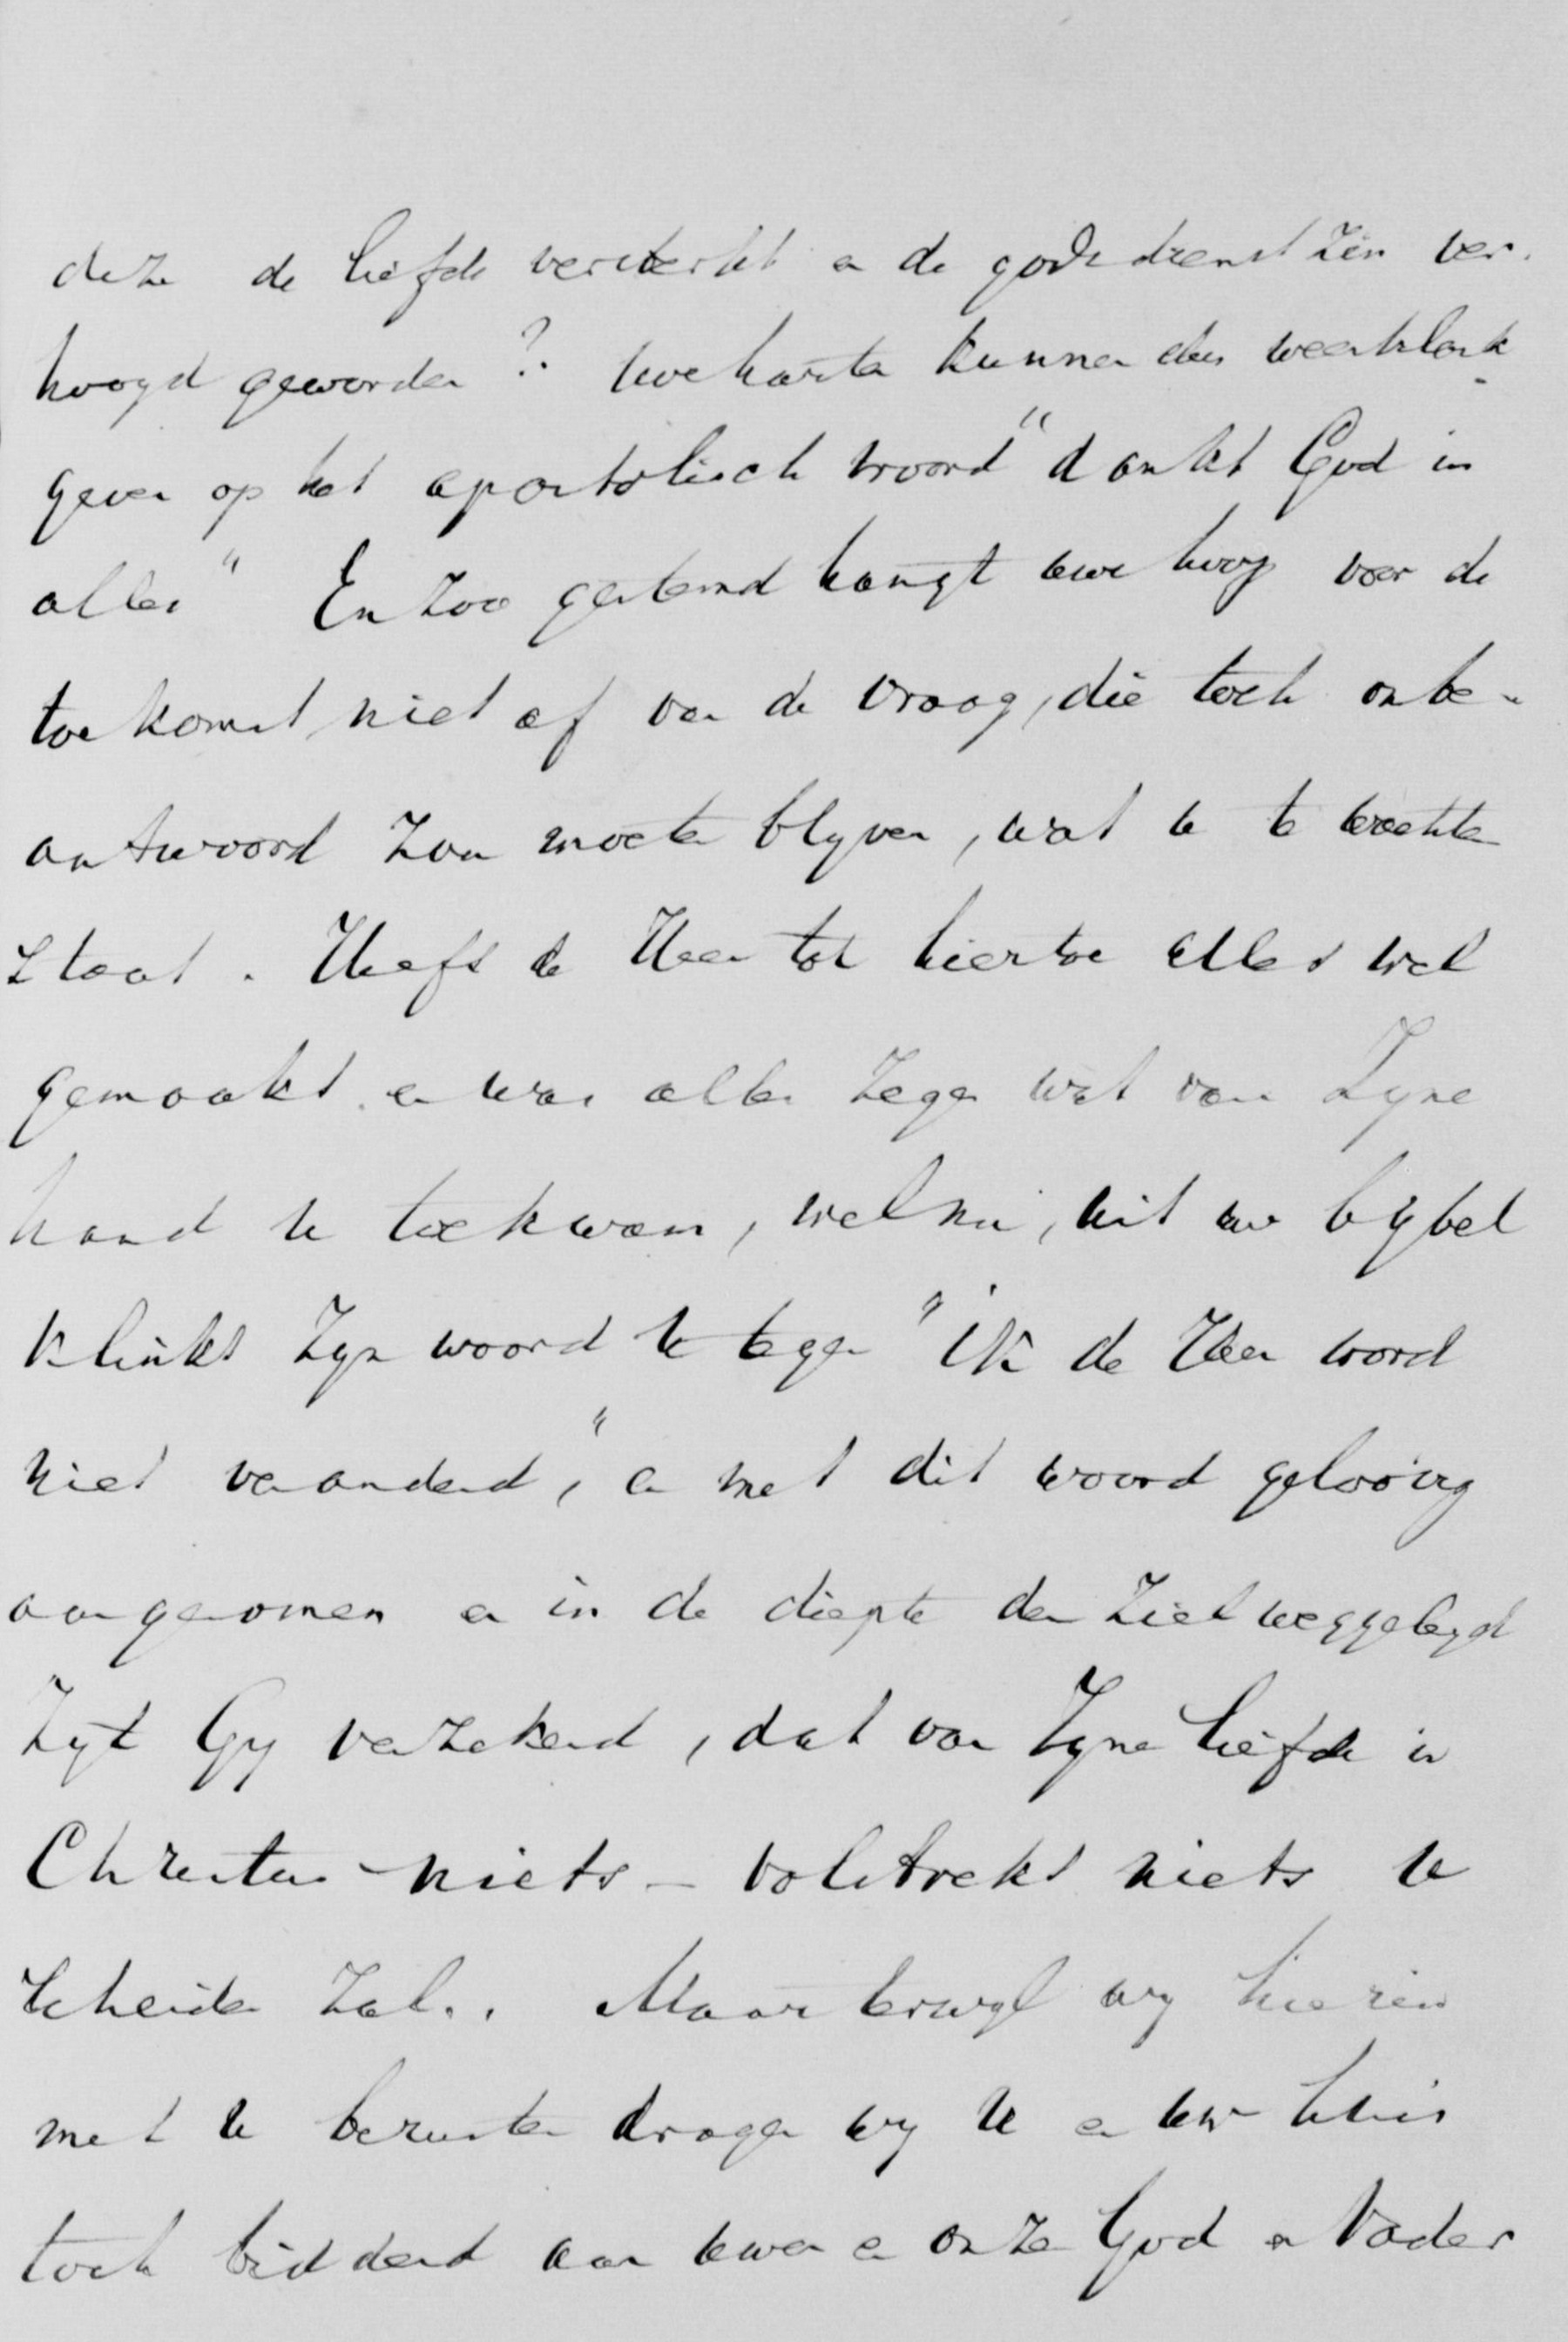 deze de liefde versterkt en de godsdienstzin ver-
hoogd geworden? Uwe harten kunnen dus weerklank
geven op het apostolisch woord "dankt God in
alles" En zoo gestemd hangt uwe hoop voor de
toekomst niet af van de vraag, die toch onbe-
antwoord zou moeten blyven, wat u te wachten
staat. Heeft de Heer tot hiertoe alles wel
gemaakt en was alles zegen wat van Zyne
hand u toekwam, welnu, uit uw bybel
klinkt Zyn woord u tegen "ik de Heer word
niet veranderd," en met dit woord geloovig
aangenomen en in de diepte der ziel weggelegd
zyt Gy verzekerd, dat van Zyne liefde in
Christus niets - volstrekt niets u
scheiden zal. Maar terwyl wy hierin
met u berusten dragen wy u en uw huis
toch biddend aan uwen en onzen God en Vader